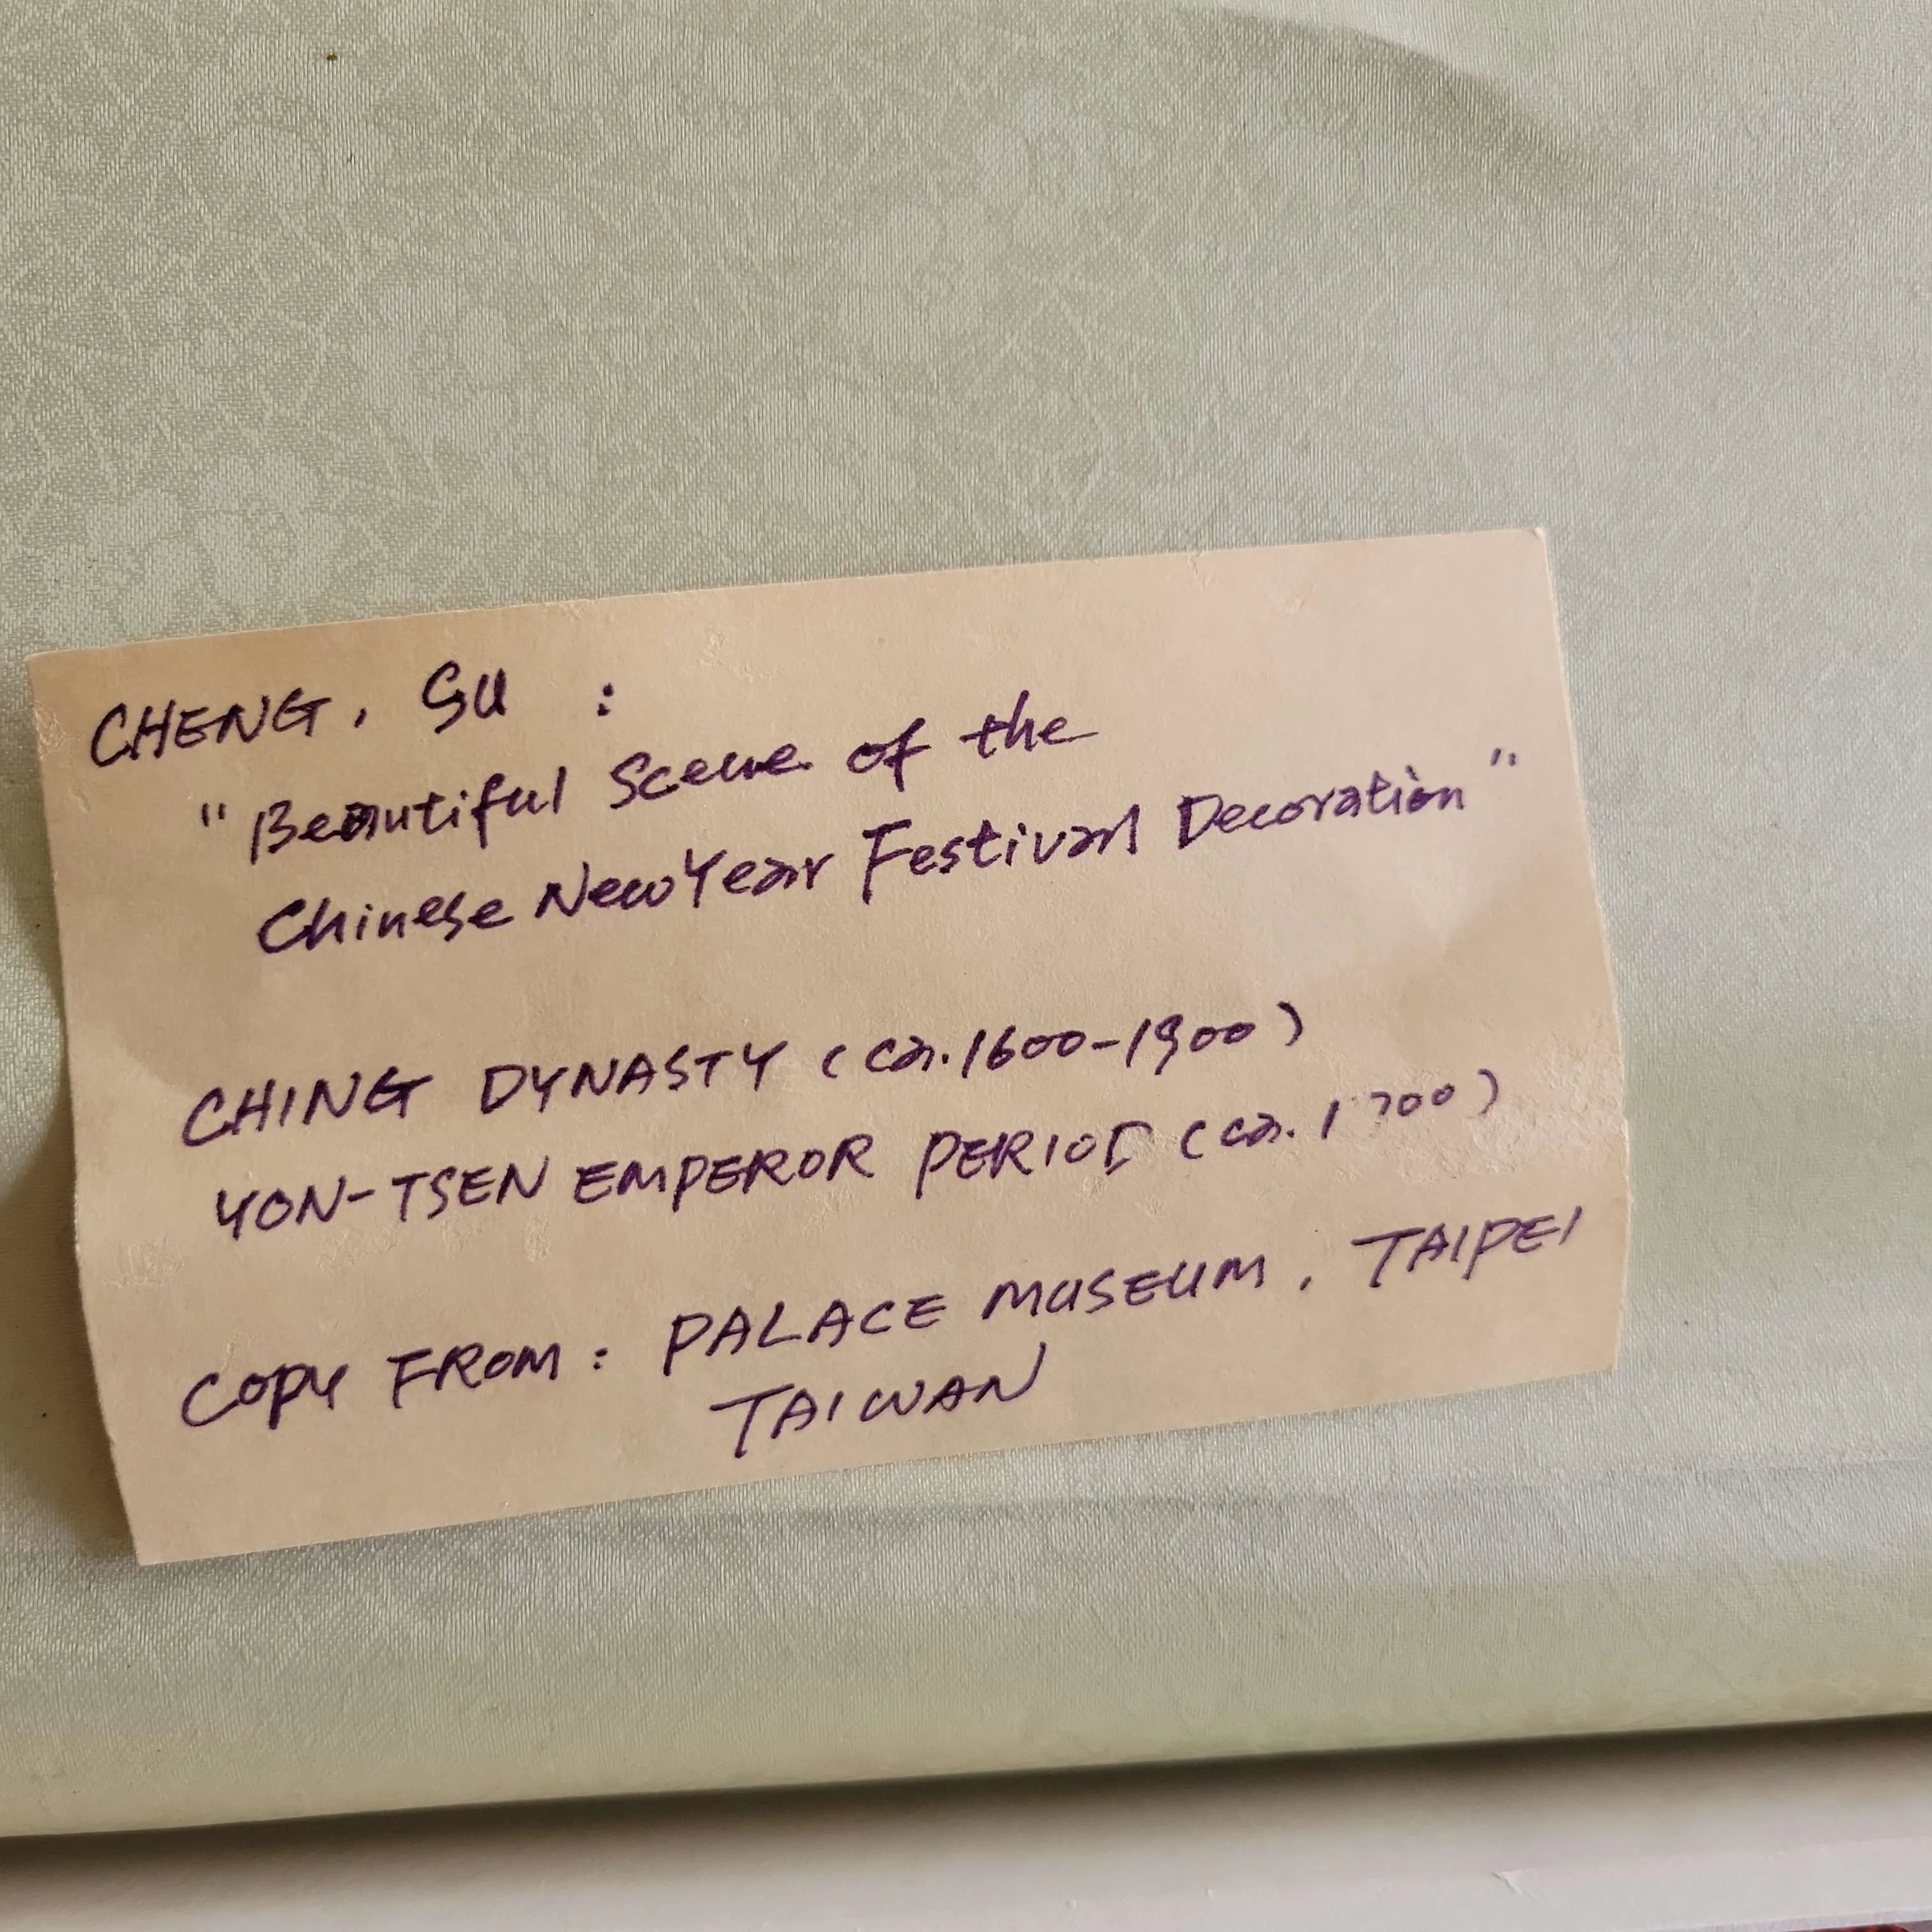 CHENG, SU :
"Beautiful Scene of the
Chinese New Year Festival Decoration"
CHING DYNASTY (ca. 1600-1900)
YON-TSEN EMPEROR PERIOD (ca. 1700)
COPY FROM: PALACE MUSEUM, TAIPEI
TAIWAN